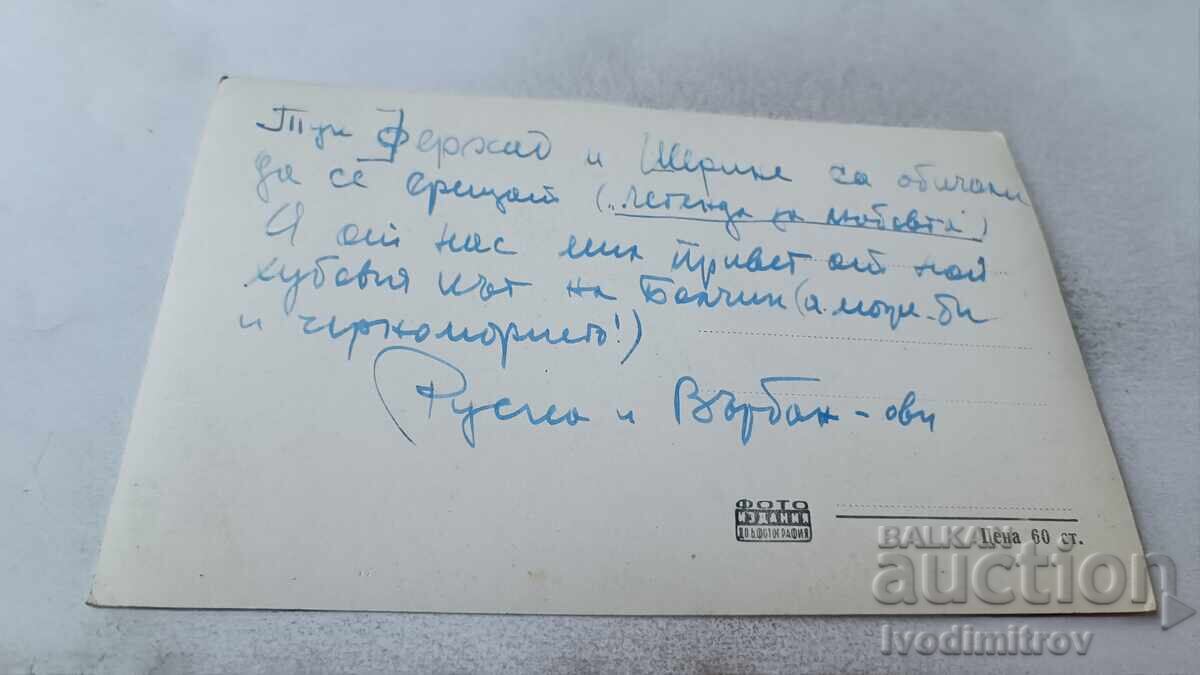 Тук Ферхад и Ширине са обичали
да се срещат („легенда за любовта“)
И от нас мил привет от най
хубавия кът на Балчик (а може-би
и черноморието!)
Руска и Върбан-ови
ФОТО
ИЗДАНИЯ
Д О Б Ф ФОТОГРАФИЯ
Цена 60 ст.
BALKAN
auction
Ivodimitrov